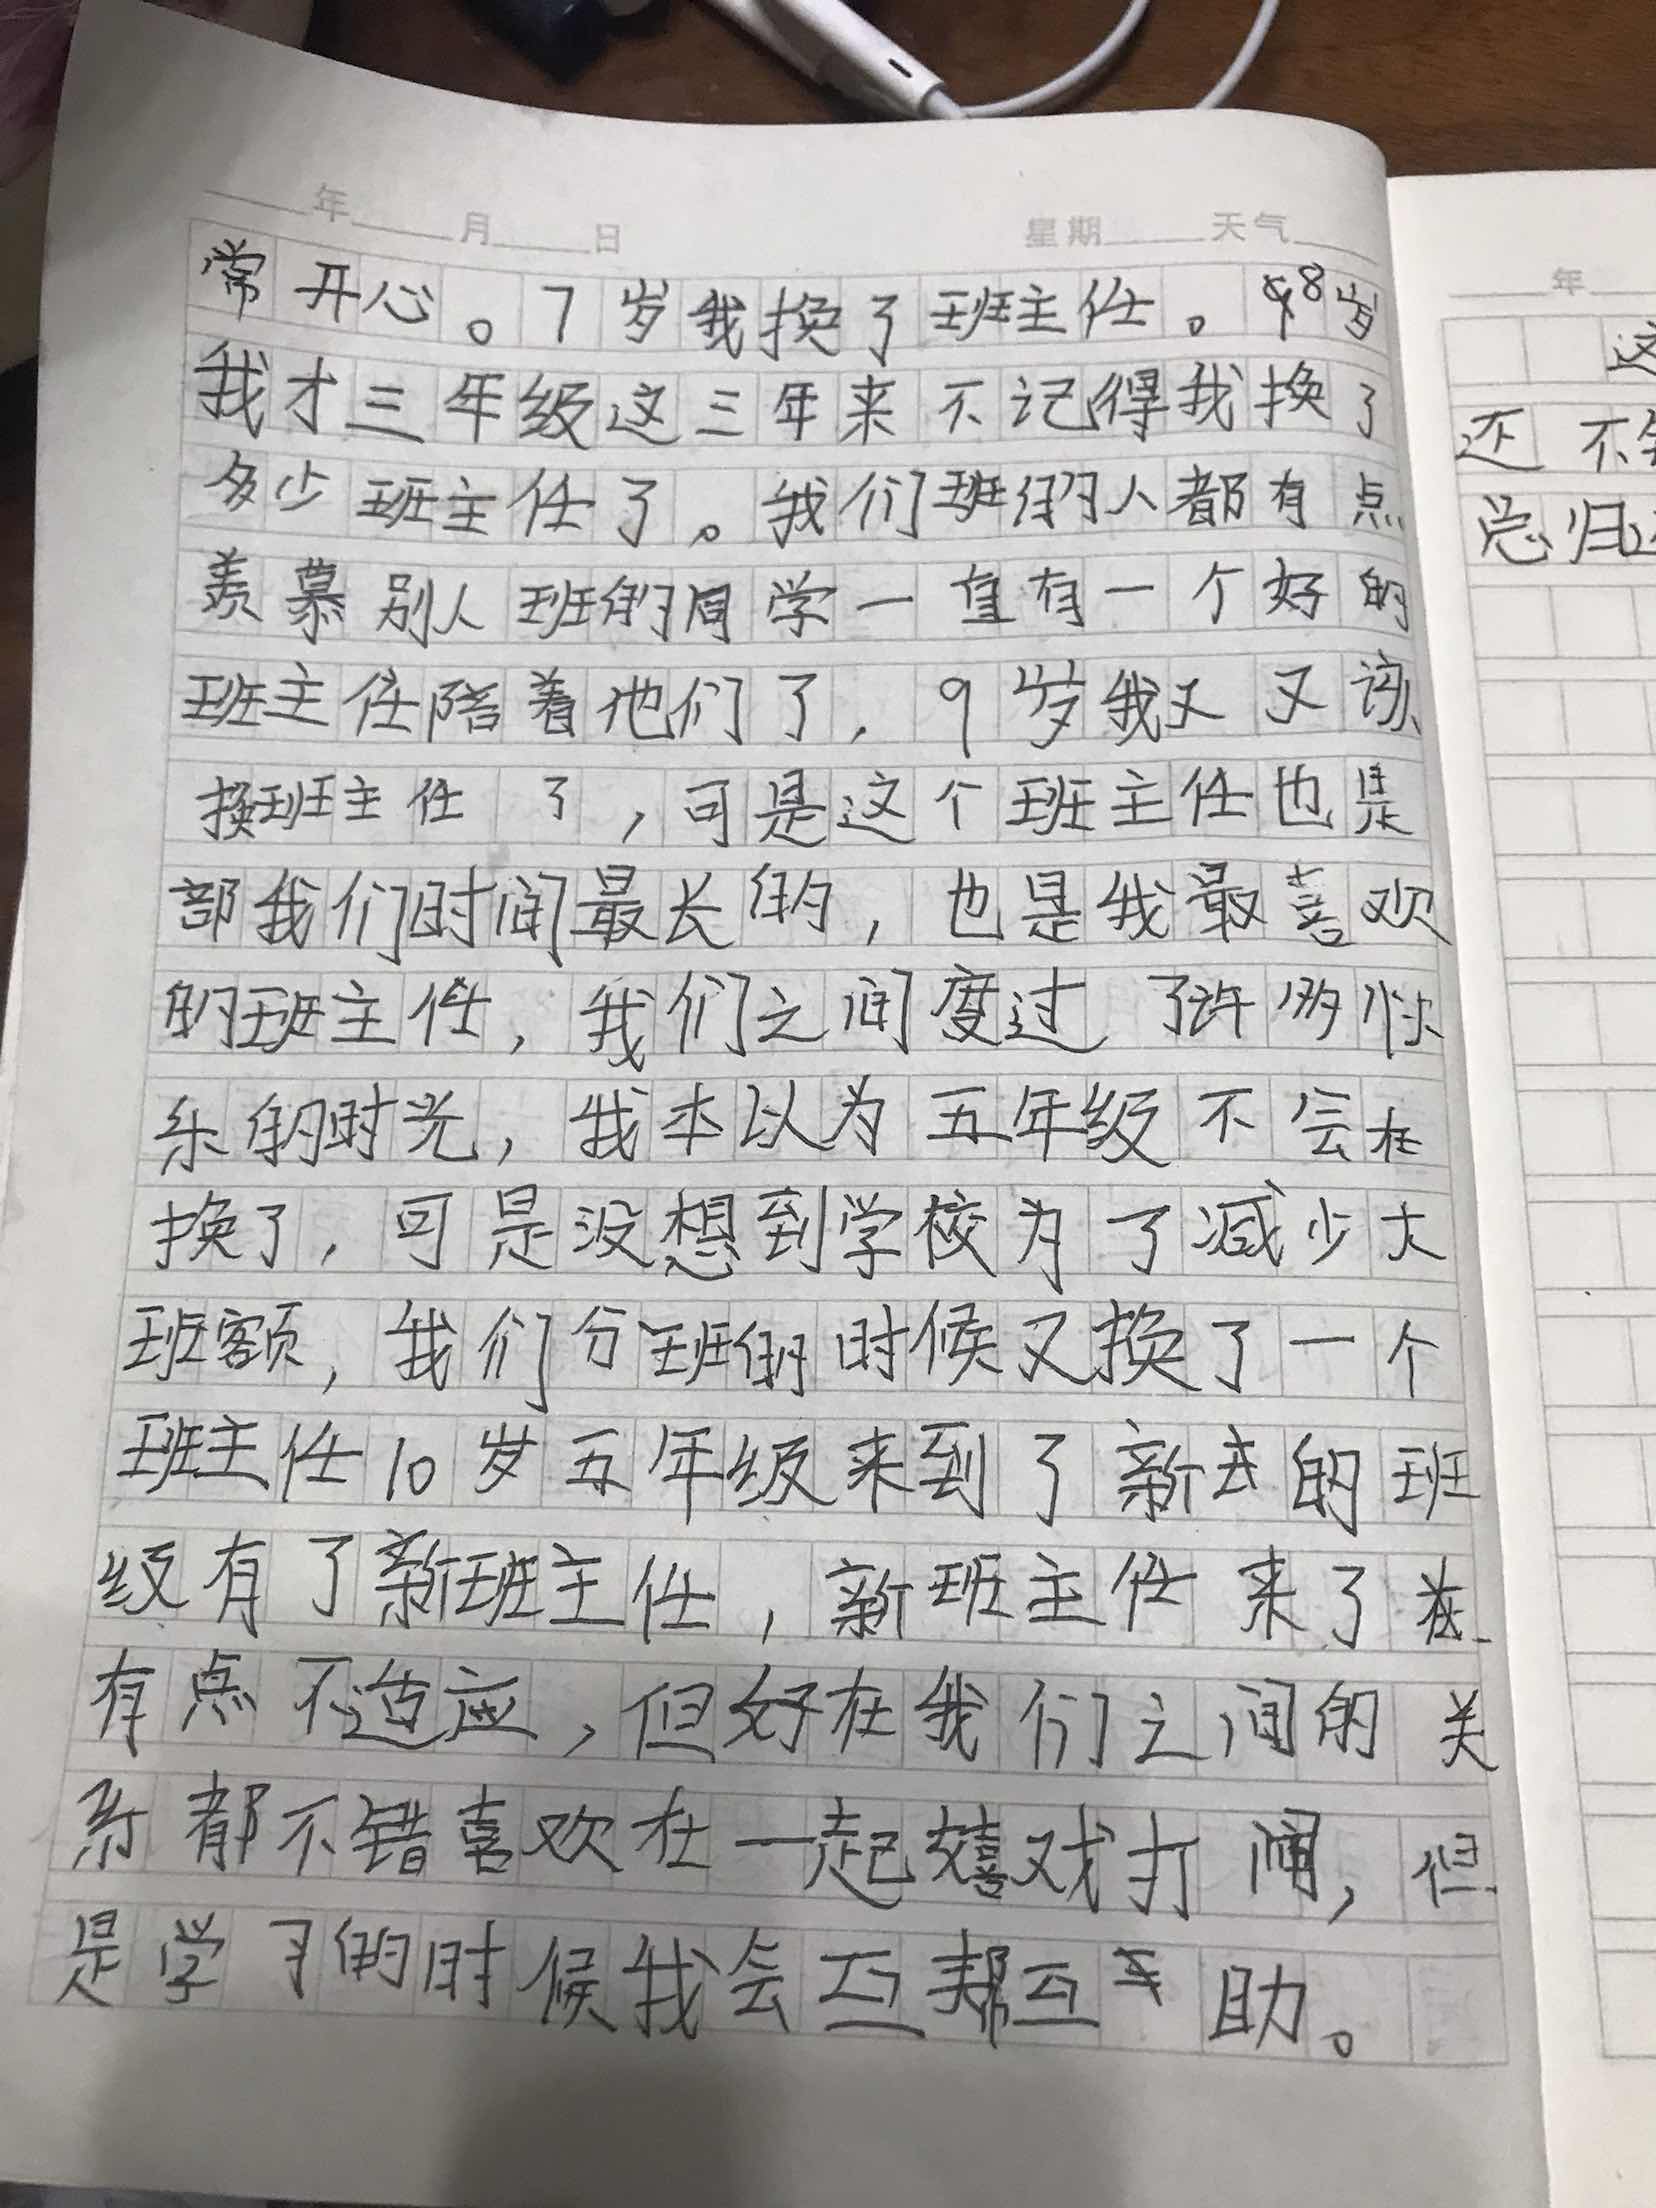 年 月 日 星期 天气
常开心。7岁我换了班主任。8岁
我才三年级这三年来不记得我换了
多少班主任了。我们班的人都有点
羡慕别人班的同学一直有一个好的
班主任陪着他们了，9岁我又又该
换班主任了，可是这个班主任也是
部我们时间最长的，也是我最喜欢
的班主任，我们之间度过了许多快
乐的时光，我本以为五年级不会在
换了，可是没想到学校为了减少大
班额，我们分班的时候又换了一个
班主任10岁五年级来到了新的班
级有了新班主任，新班主任来了
有点不适应，但好在我们之间的关
系都不错喜欢在一起嬉戏打闹，但
是学习的时候我会互帮互助。
年
这
还不错
总归这